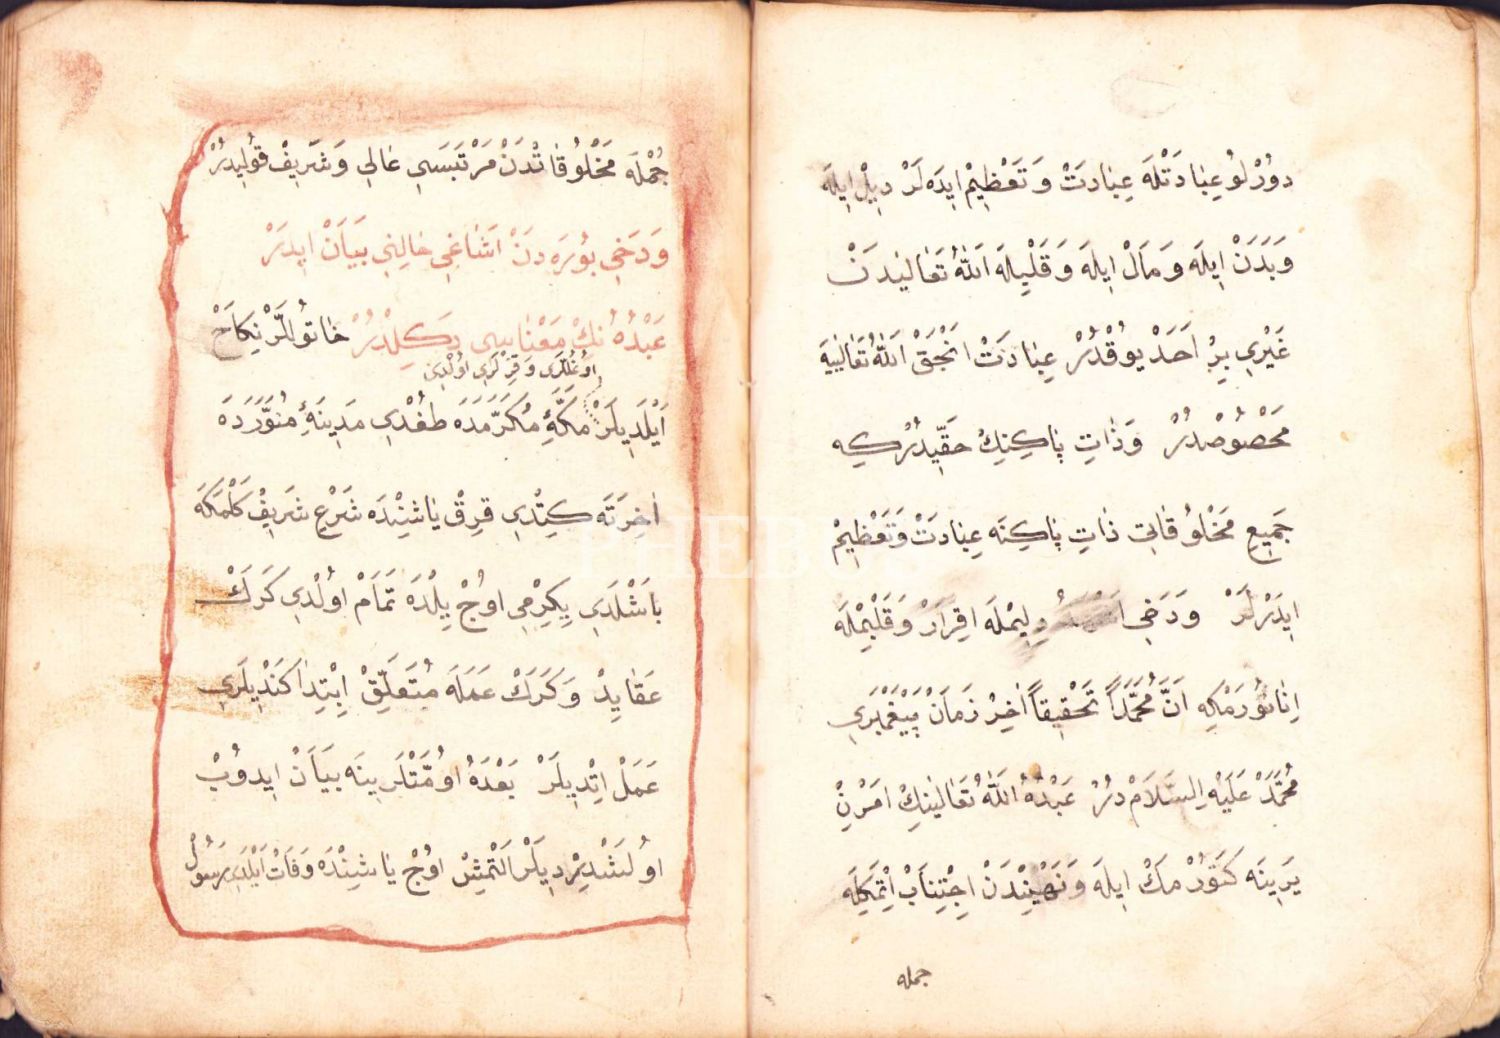 دُورْلُو عِبَادَتْلَه عِبَادَتْ وَ تَعْظِيمْ ايِدَه لَرْ دِيلْ ايِلَه
وَ بَدَنْ ايِلَه وَ مَالْ ايِلَه وَ قَلْبِيلَه اللّٰهُ تَعَالَيدَنْ
غَيْرِي بِرْ اَحَدْ يُوقْدُرْ عِبَادَتْ انْجَقْ اللّٰهُ تَعَالَييَه
مَخْصُوصْدُرْ وَ ذَاتِ پَاكِنِكْ حَقِّيدُرْكِه
جَمِيعِ مَخْلُوقَاتِ ذَاتِ پَاكِنَه عِبَادَتْ وَ تَعْظِيمْ
ايِدَرْلَرْ وَ دَخِي دِلِيمْلَه اقِرَارْ وَ قَلْبِمْلَه
اِنَانُورَمْكِه اَنَّ مُحَمَّدًا تَحْقِيقًا اٰخِرْ زَمَانْ پَيْغَمْبَرِي
مُحَمَّدْ عَلَيْهِ السَّلَامْ دُرْ عَبْدُهُ اللّٰهُ تَعَالَينِكْ امْرِنْ
يَرِينَه كَتُورْمَكْ ايِلَه وَ نَهْيِنْدَنْ اِجْتِنَابْ اِتْمَكِلَه
جمله
جُمْلَه مَخْلُوقَاتْدَنْ مَرْتَبَسَي عَالِي وَ شَرِيفْ قُولِيدُرْ
وَ دَخِي بُورَه دَنْ اَشَاغِي حَالِنِي بَيَانْ ايِدَرْ
عَبْدُهُ نُكْ مَعْنَاسِي دِكِلْدُرْ خَاتُونْلَرْ نِكَاحْ
اوُغُلْلَرِي وَ قِزْلَرِي اوُلْدِي
اَيْلَدِيلَرْ مَكَّهِٔ مُكَرَّمَه دَه طُغْدِي مَدِينَهِٔ مُنَوَّرَه دَه
اٰخِرَتَه كِتْدِي قِرِقْ يَاشِنْدَه شَرْعِ شَرِيفْ كَلْمَكَه
بَاشْلَدِي يِكِرْمِي اوُچْ يِلْدَه تَمَامْ اوُلْدِي كَرَكْ
عَقَايِدْ وَ كَرَكْ عَمَلَه مُتَعَلِّقْ اِبْتِدَا كَنْدِيلَرِي
عَمَلْ اِتْدِيلَرْ بَعْدَهُ اوُمَّتْلَرِينَه بَيَانْ ايِدُوبْ
اوُلَشْدِرْدِيلَرْ الْتْمِشْ اوُچْ يَاشِنْدَه وَفَاتْ اَيْلَدِي رَسُولْ